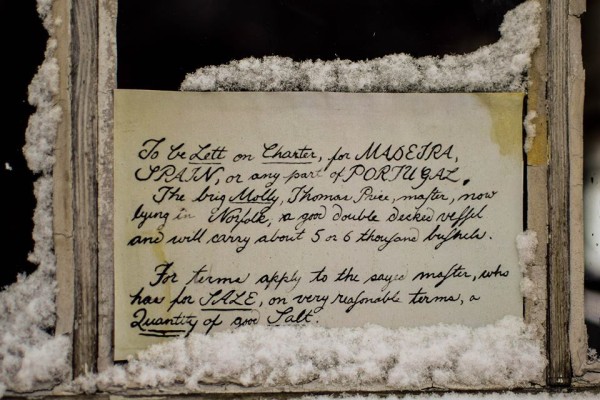 To be Lett on Charter, for MADEIRA,
SPAIN, or any part of PORTUGAL.
The brig Molly, Thomas Price, maſter, now
lying in Norfolk; a good double decked veſſel
and will carry about 5 or 6 thouſand buſhels.
For terms apply to the sayed maſter, who
has for SALE, on very reaſonable terms, a
Quantity of good Salt.